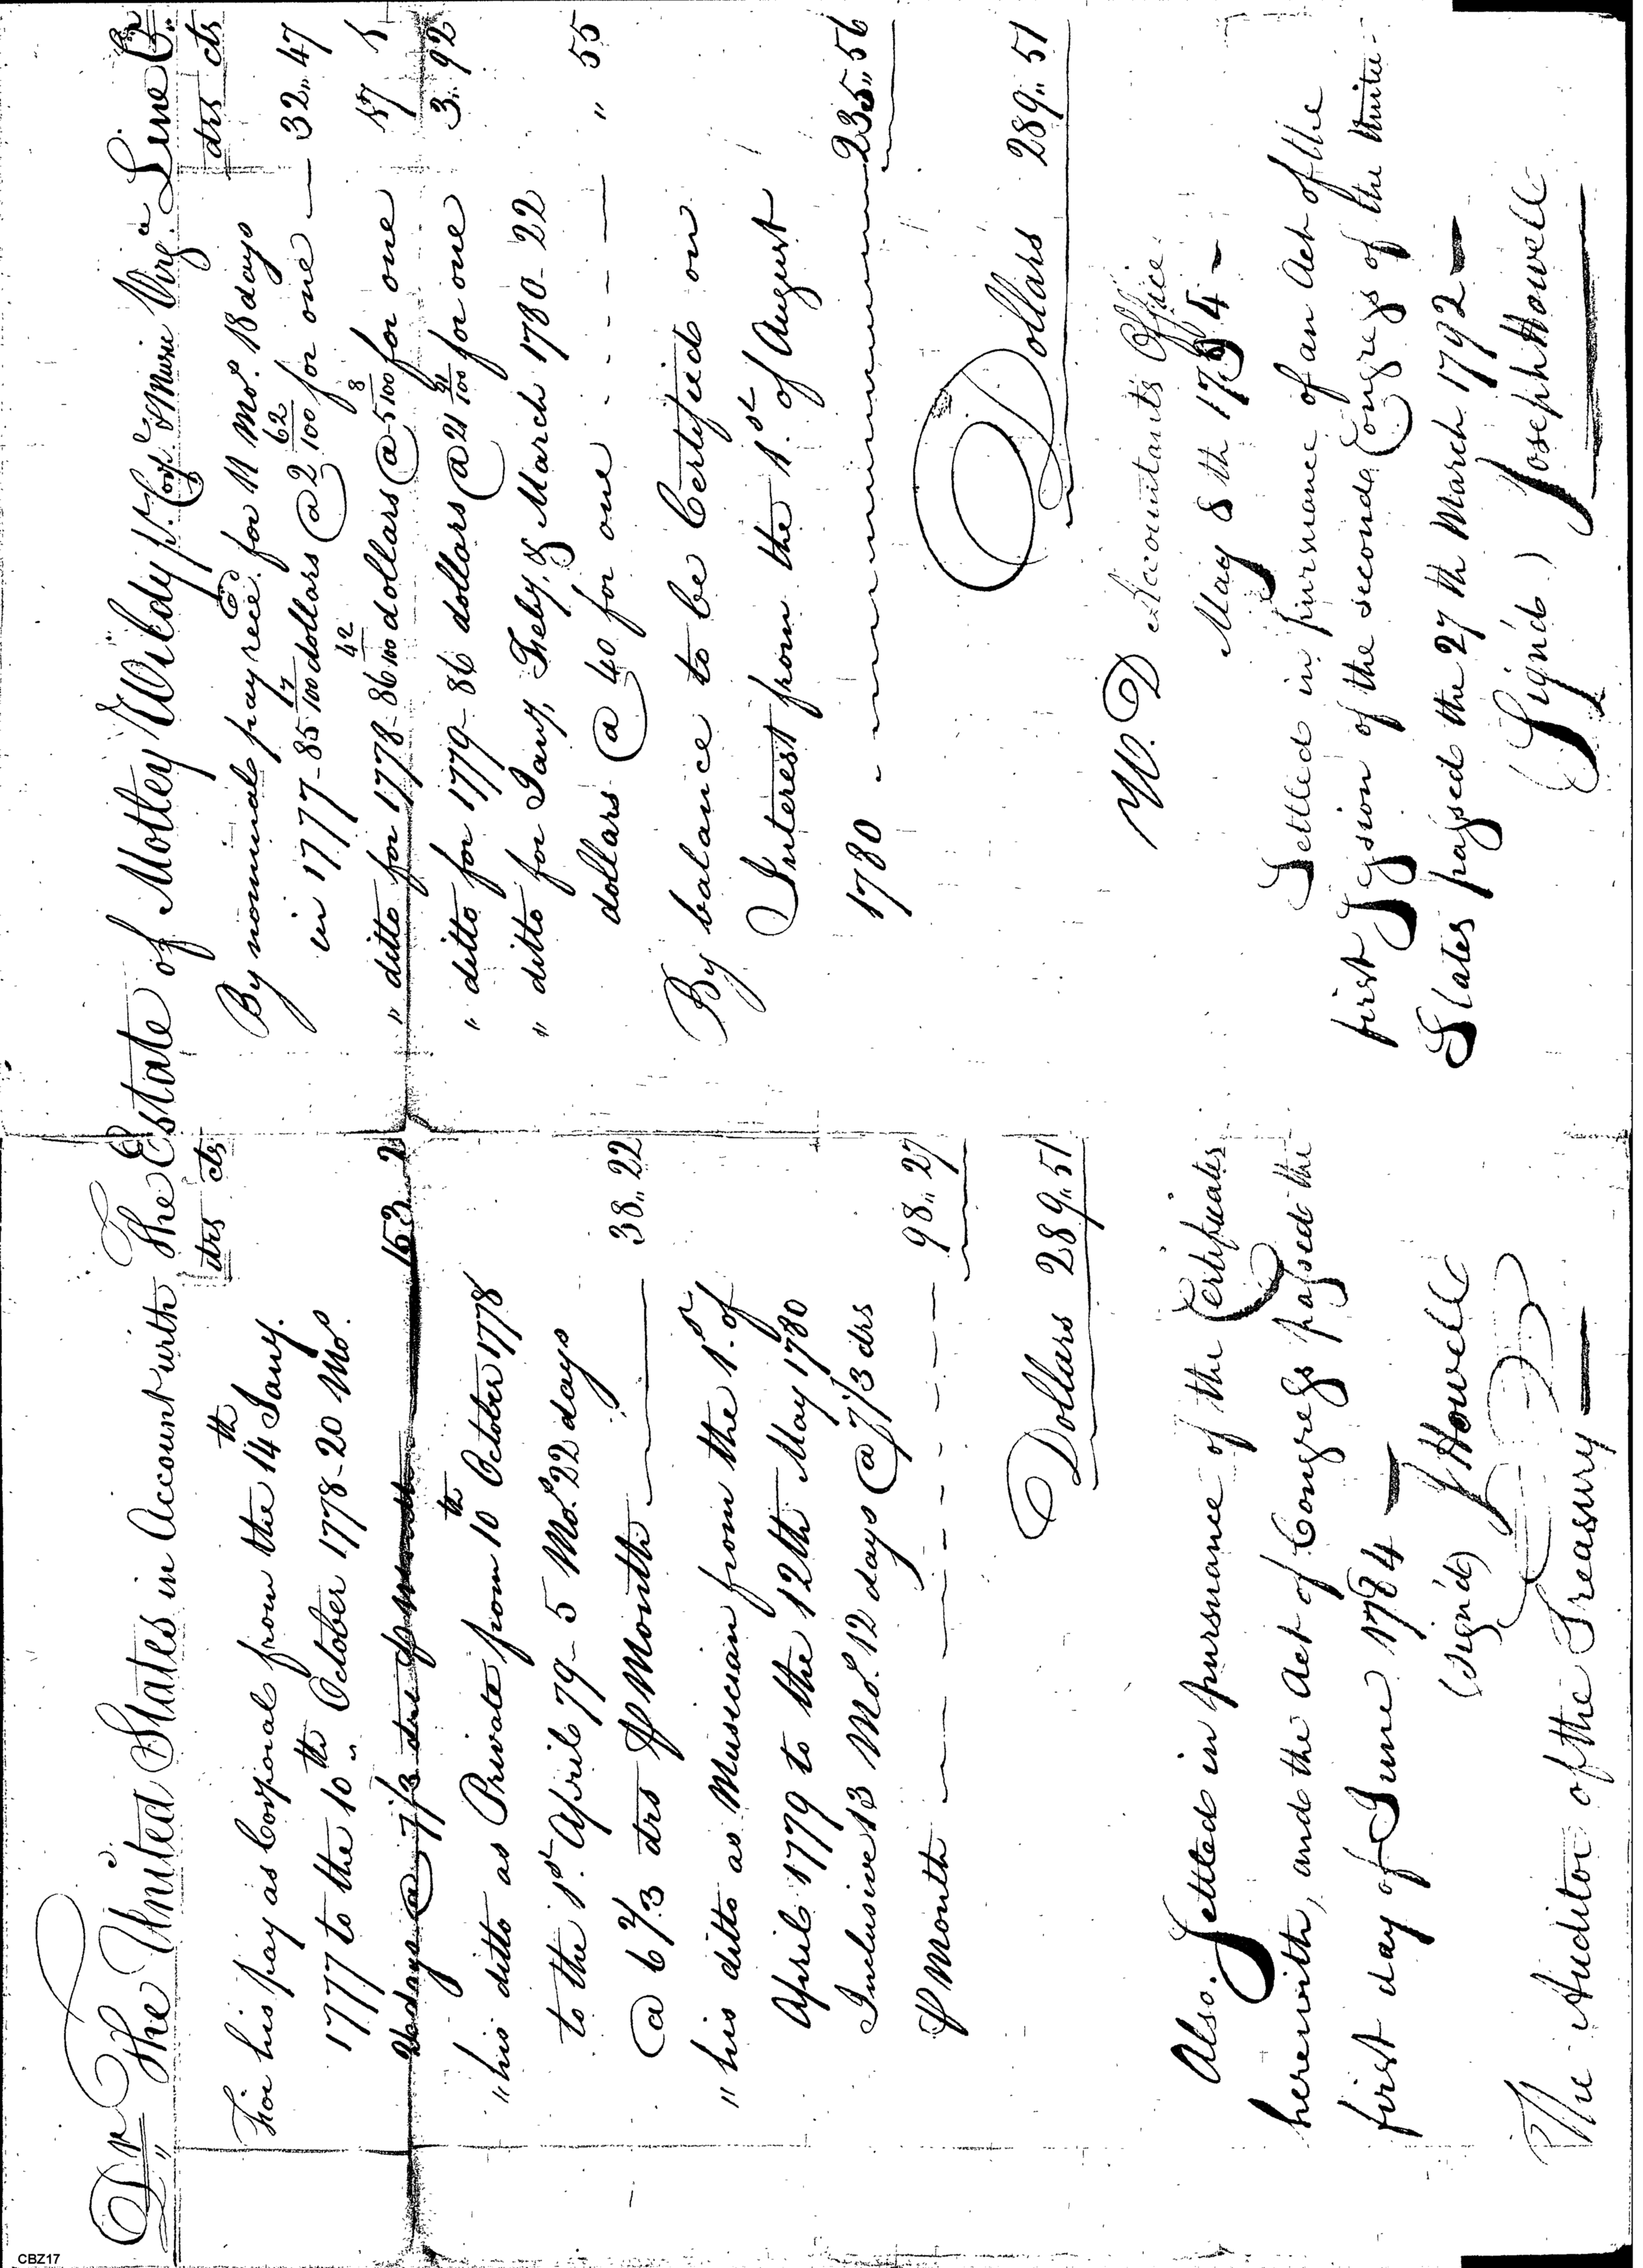 Dr The United States in Account with The Estate of Mottey Wildy pt. Corpl & Music Virga Line Cr
drs cts
For his pay as Corporal from the 14th Jany.
1777 to the 10th October 1778-20 Mos.
26 days @ 7 1/3 drs pr month 153 2
"his ditto as Private from 10th October 1778
to the 1st April 79-5 Mos. 22 days
@ 6 2/3 drs pr Month 38.. 22
" his ditto as Musician from the 1st of
April 1779 to the 12th May 1780
Inclusive 13 Mos. 12 days @ 7 1/3 drs
pr Month 98.. 27
Dollars 289.. 51
Also. Settled in pursuance of the Certificates
herewith, and the Act of Congress passed the
first day of June 1784
(signd) J Howell
The Auditor of the Treasury
drs cts
By nominal pay recd for 11 Mos. 18 days
in 1777-85 17/100 dollars @ 2 62/100 for one 32.. 47
" ditto for 1778-86 42/100 dollars @ 5 8/100 for one 17 1
" ditto for 1779-86 dollars @ 21 91/100 for one 3.. 92
" ditto for Jany, Feby, & March 1780-22
dollars @ 40 for one " 55
By balance to be Certified on
Interest from the 1st of August
1780 235.. 56
Dollars 289.. 51
W. D Accountants Office
May 8th 1794
Settled in pursuance of an Act of the
first Session of the second Congress of the Unite
States passed the 27th March 1792
(Signd.) Joseph Howell
CBZ17